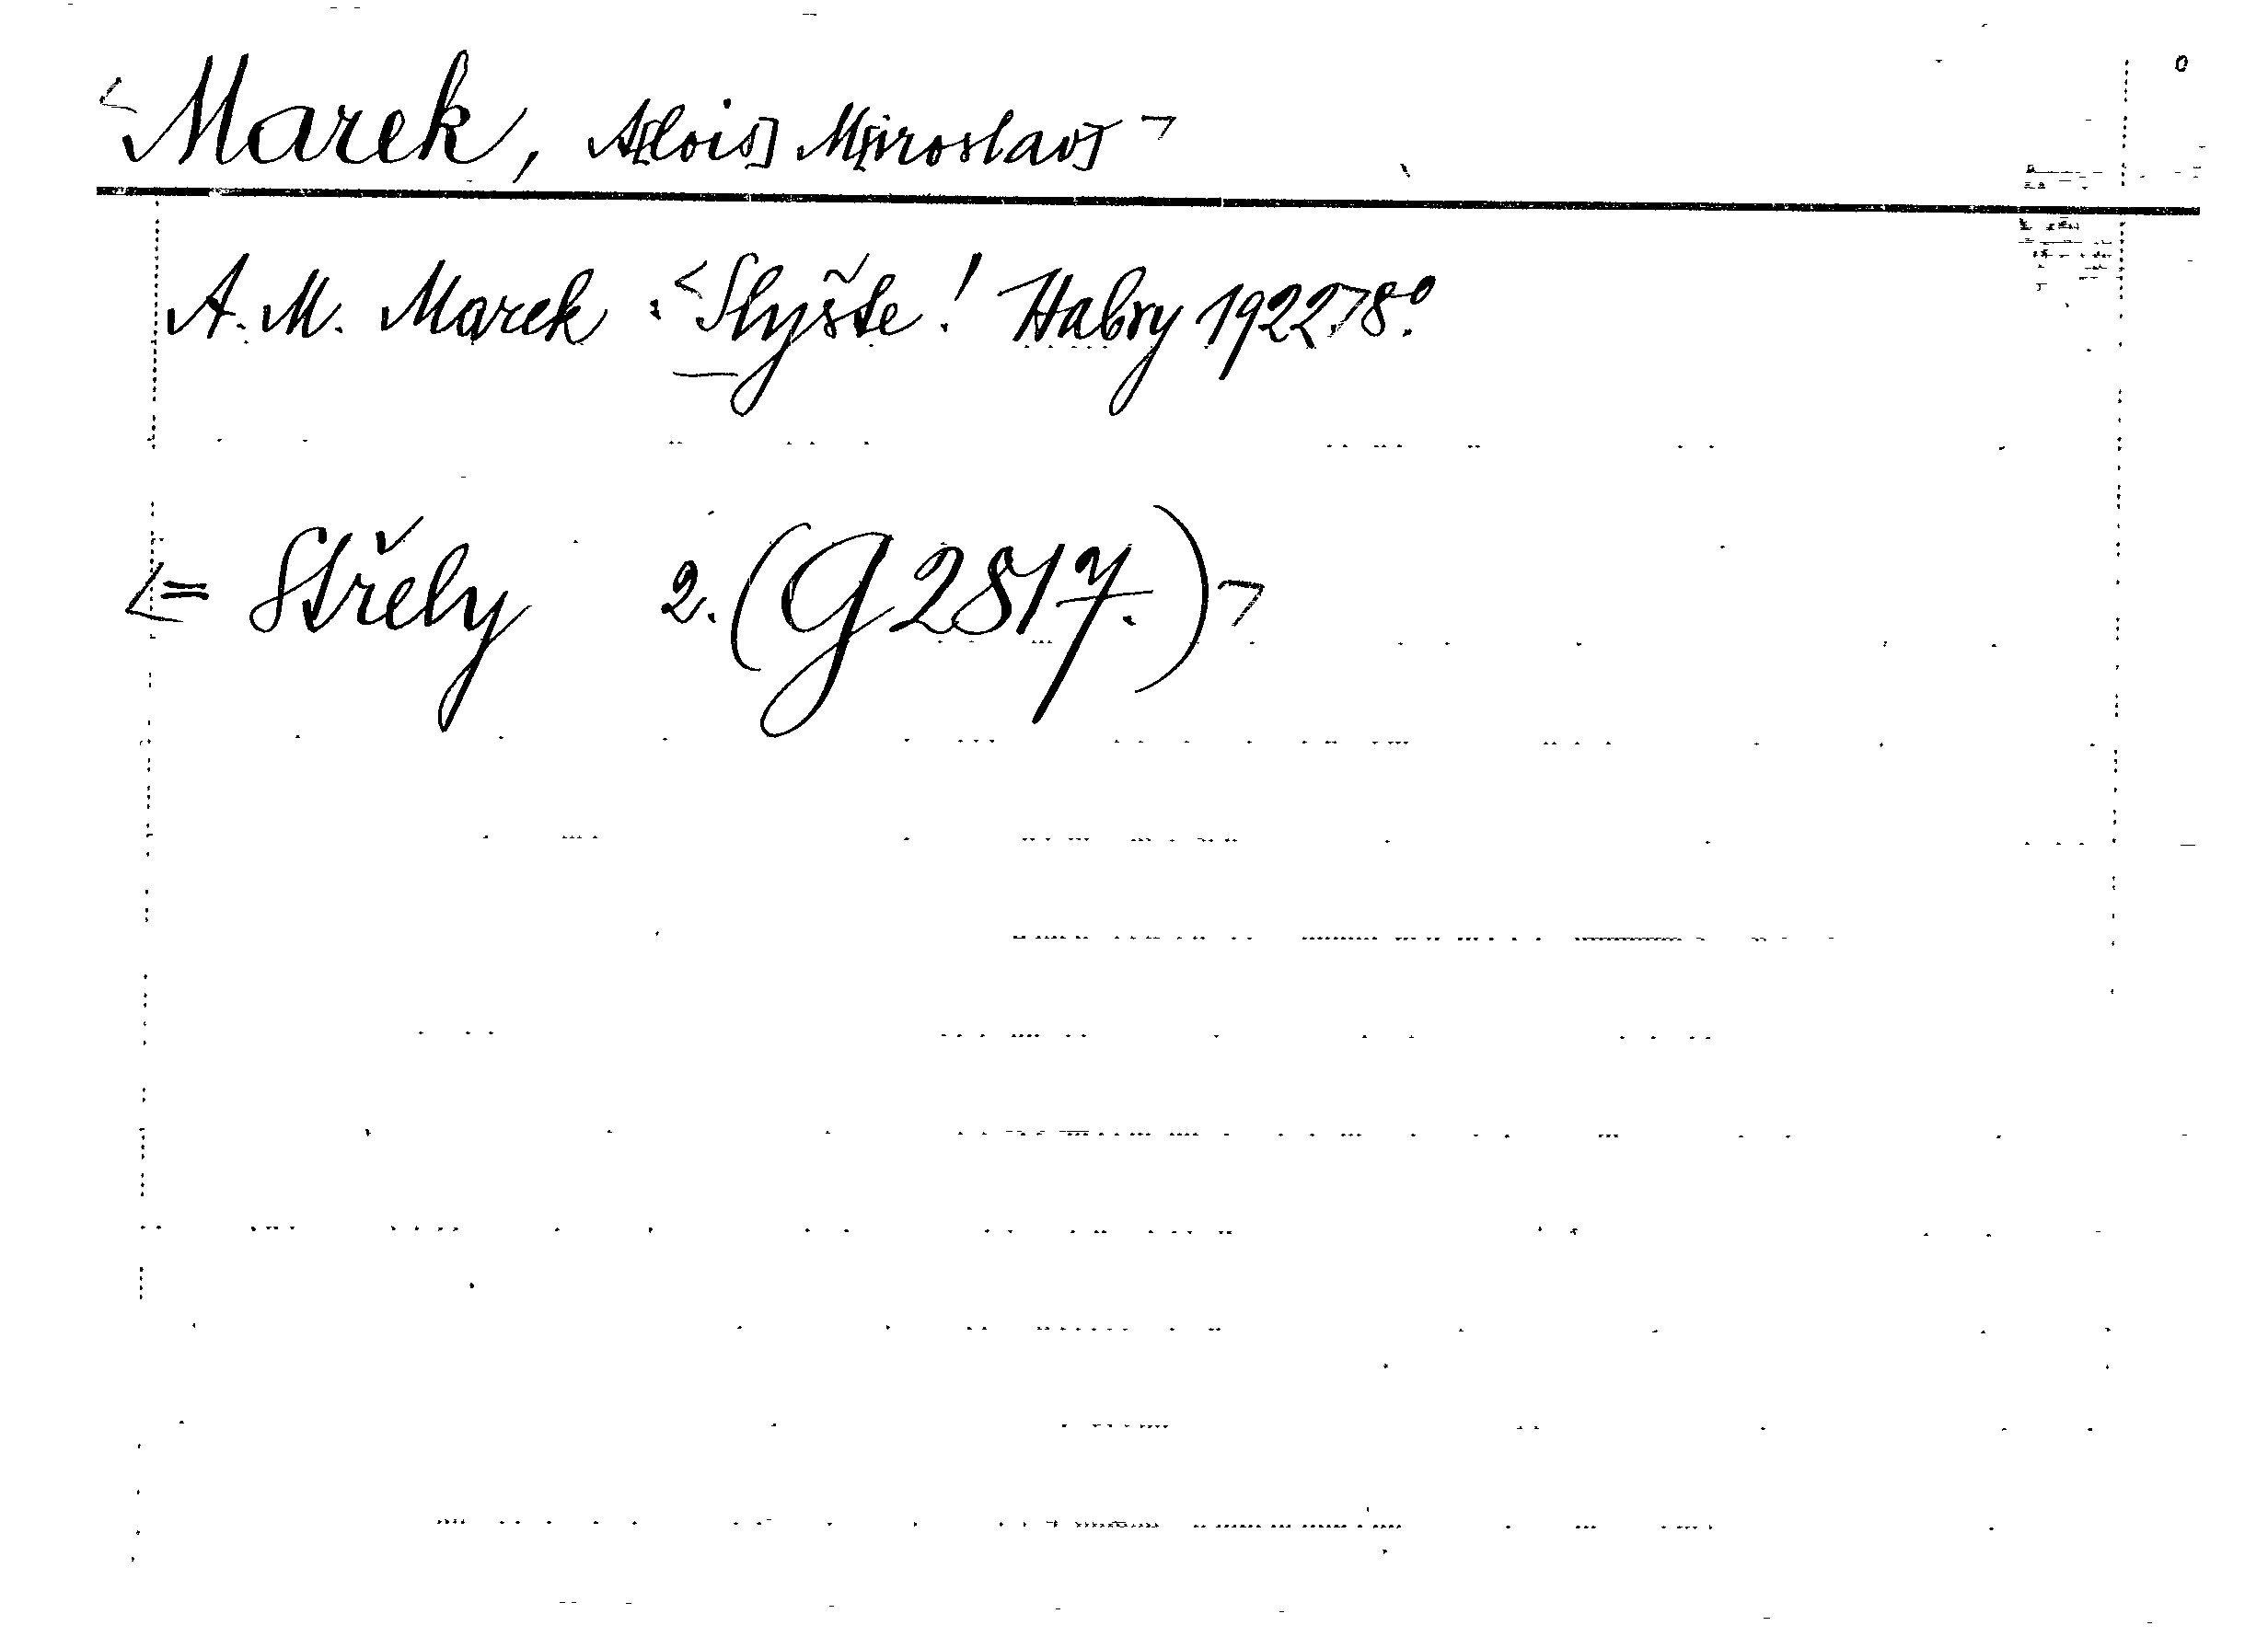 <Marek, A[lois] M[iroslav]>
A. M. Marek : <Slyšte! Habry 1922> 8.°
<= Střely 2. (G 2817.)>